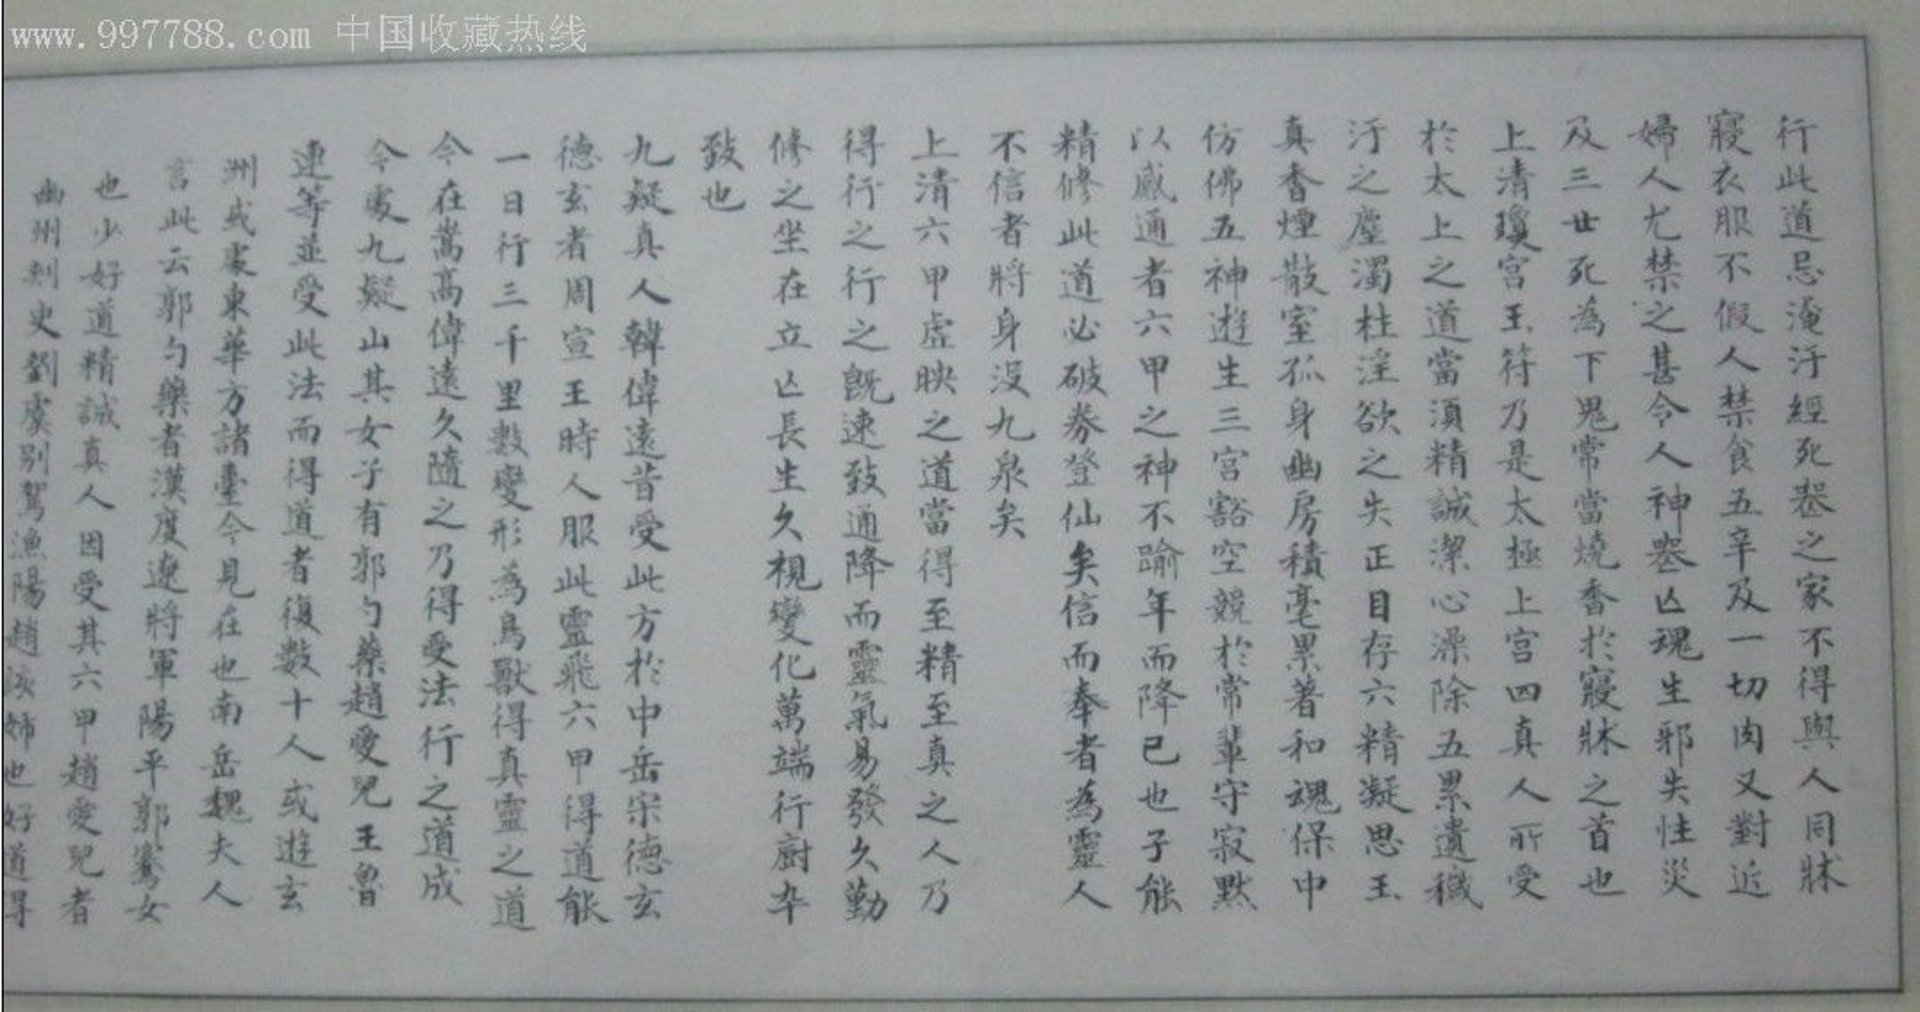 www.997788.com 中国收藏热线
行此道忌淹汙經死丧之家不得與人同牀
寢衣服不假人禁食五辛及一切肉又對近
婦人尤禁之甚令人神喪亾魂生邪失性災
及三世死為下鬼常當燒香於寢牀之首也
上清瓊宮玉符乃是太極上宮四真人所受
於太上之道當須精誠潔心澡除五累遺穢
汙之塵濁杜淫欲之失正目存六精凝思玉
真香煙散室孤身幽房積毫累著和魂保中
仿佛五神遊生三宮豁空競於常輩守寂默
以感通者六甲之神不踰年而降已也子能
精修此道必破券登仙矣信而奉者為靈人
不信者將身没九泉矣
上清六甲虛映之道當得至精至真之人乃
得行之行之旣速致通降而靈氣易發久勤
修之坐在立亾長生久視變化萬端行廚卒
致也
九疑真人韓偉遠昔受此方於中岳宋德玄
德玄者周宣王時人服此靈飛六甲得道能
一日行三千里數變形為鳥獸得真靈之道
今在嵩高偉遠久隨之乃得受法行之道成
今處九疑山其女子有郭勺藥趙愛兒王魯
連等並受此法而得道者復數十人或遊玄
洲或處東華方諸臺今見在也南岳魏夫人
言此云郭勺藥者漢度遼將軍陽平郭騫女
也少好道精誠真人因受其六甲趙愛兒者
幽州刺史劉虞別駕漁陽趙該姊也好道得